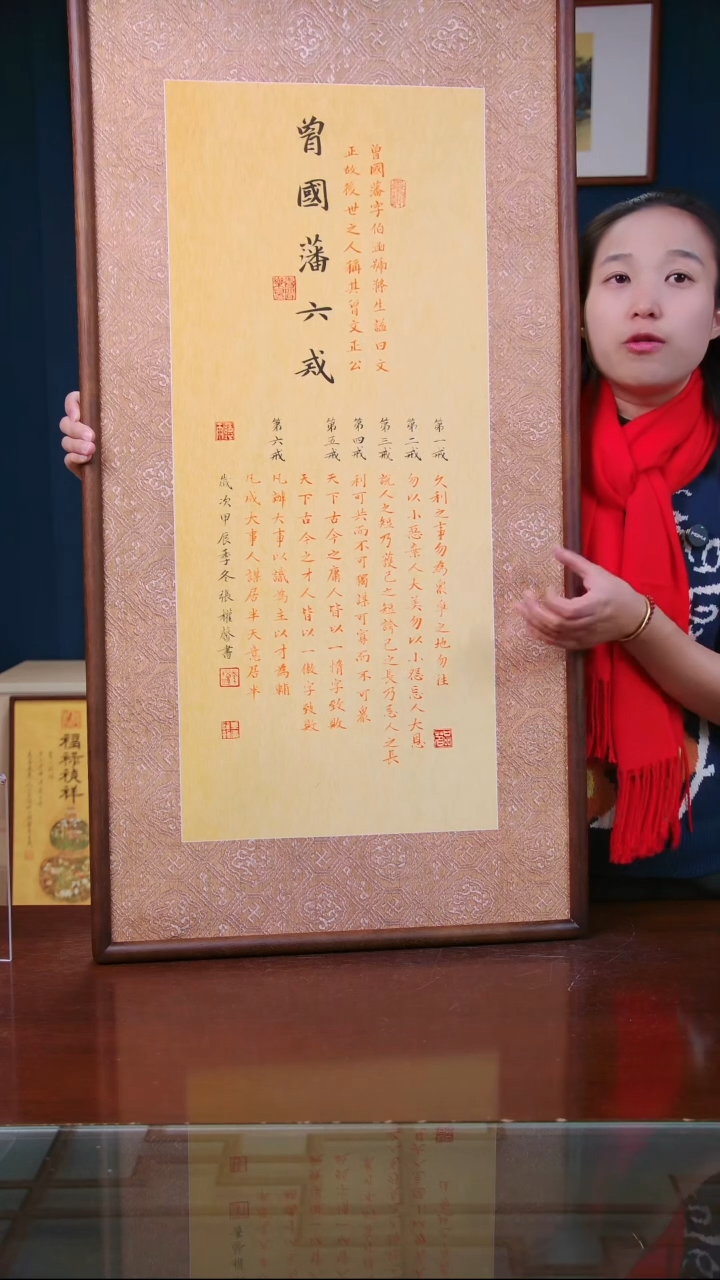 曾國藩六戒
曾國藩字伯涵號滌生謚曰文
正故後世之人稱其曾文正公
第一戒 久利之事勿為眾爭之地勿往
第二戒 勿以小惡棄人大美勿以小怨忘人大恩
第三戒 說人之短乃護己之短誇己之長乃忌人之長
第四戒 利可共而不可獨謀可寡而不可眾
第五戒 天下古今之庸人皆以一惰字致敗
天下古今之才人皆以一傲字致敗
第六戒 凡辦大事以識為主以才為輔
凡成大事人謀居半天意居半
歲次甲辰季冬張耀馨書
福祿禎祥